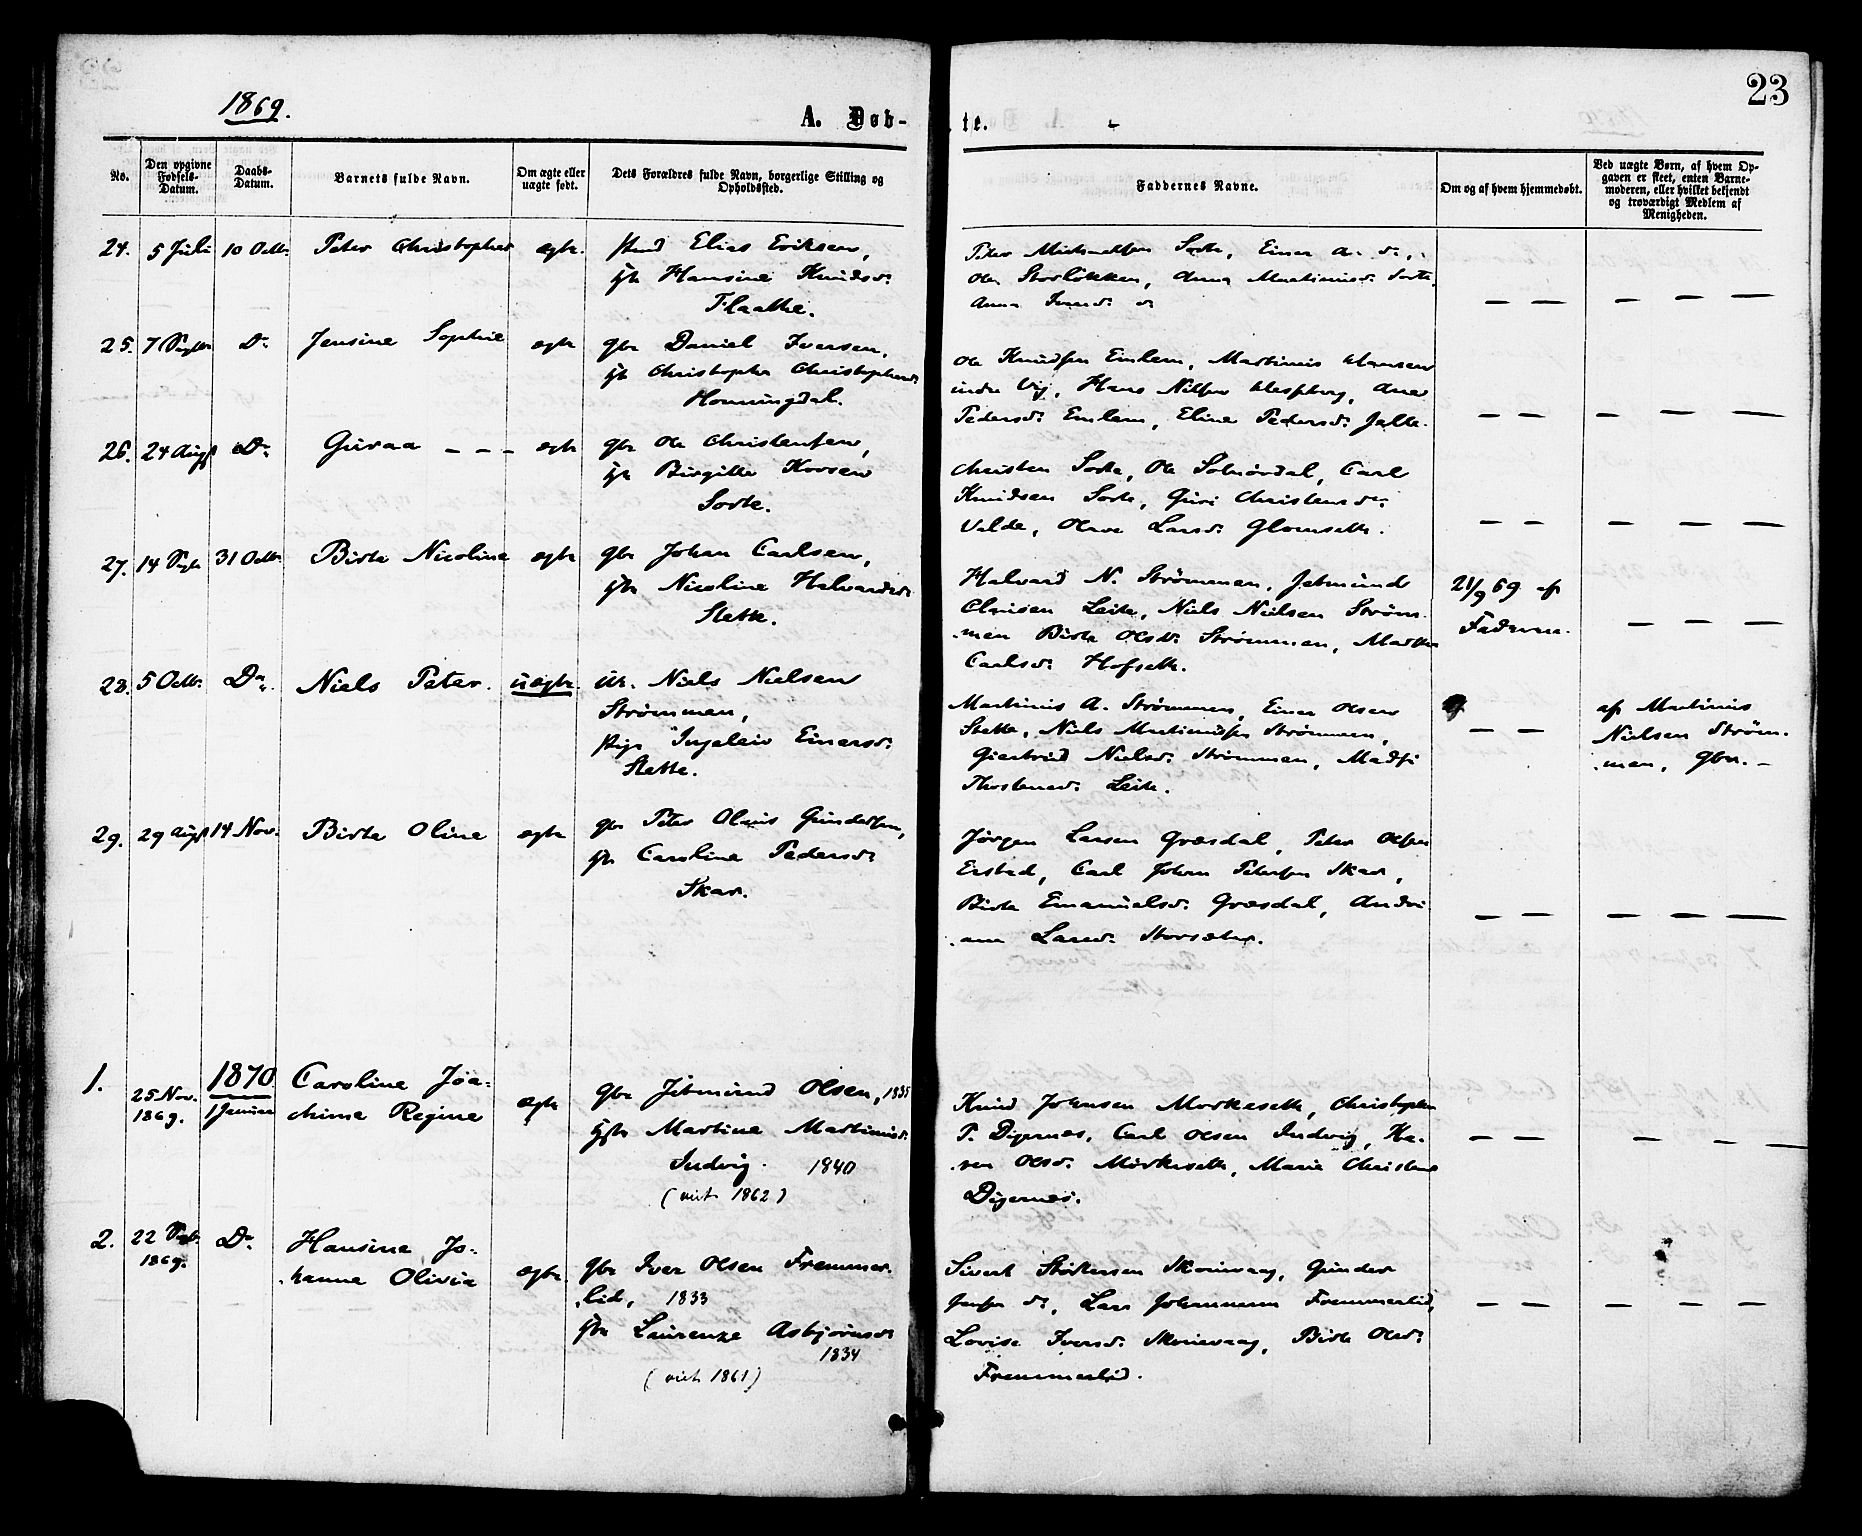 1869.
A. Døb-
te.
23
No.
Den opgivne Fødsels-Datum.
Daabs-Datum.
Barnets fulde Navn.
Om ægte eller uægte født.
Dets Forældres fulde Navn, borgerlige Stilling og Opholdssted.
Faddernes Navne.
Om og af hvem hjemmedøbt.
Ved uægte Børn, af hvem Op-
gaven er skeet, enten Barne-
moderen, eller hvilket bekjendt
og troværdigt Medlem af
Menigheden.
24. 5 Juli 10 Octb. Peter Christopher ægte.
Elias Eriksen,
Hansine Knudsd:
Flaathe.
Peter Michaelsen Sorte, Einer A. do,
Ole Storløkken, Anna Martinusd: Sorte,
Anna Iversd: do
— — — — —
25. 7 Septbr Do Jensine Sophie ægte
gbr Daniel Iversen,
Honningdal.
Ole Knudsen Emlem, Martinus Hansen
indre Vig, Hans Nilsen
Pedersd: Emlem, Eline Pedersd:
— — — — —
26. 24 Augst Do Guraa - - - ægte
gbr Ole Christensen,
Birgitte
Sorte.
Christen Sorte, Ole Solnørdal, Carl
Knudsen Sorte, Guri Christensd:
Valde, Olave Larsd: Glomseth.
— — — — —
27. 14 Septr 31 Octbr Birte Nicoline ægte
gbr Johan Carlsen,
Nicoline Halvardsd:
Slette.
Halvard N. Strømmen, Jetmund
Clausen Leite, Niels Nielsen Strøm-
men Birte Olsd: Strømmen, Marthe
Carlsd: Hofseth.
21/9 69 af
Faderen.
— — —
28. 5 Octb: Do Niels Peter. uægte.
Niels Nielsen
Strømmen,
Pige Ingeleiv Einersd:
Slette.
Martinus A. Strømmen, Einer Olsen
Slette, Niels Martinusen Strømmen,
Giertrud Nielsd: Strømmen, Madsi
Thorstensd: Leite.
— —
af Martinus
Nielsen Strøm-
men, Gbr. -
29. 29 Augst 14 Nov. Birte Oline ægte
gbr Peter Olaus Gundersen,
Caroline Pedersd:
Skar.
Jørgen Larsen Græsdal, Peter Olsen
Erstad, Carl Johan Petersen Skar,
Birte Emanuelsd: Græsdal, Andri-
ane Larsd: Storsæter.
— — — — —
1. 25 Nov. 1869. 1870 1 Januar Caroline Joa-
chime Regine ægte
gbr Jetmund Olsen, 1835
Martine Martinusd:
Indvig. 1840
(viet 1862)
Knud Johnsen Morkeseth, Christopher
P. Digernes, Carl Olsen Indvig, Ka-
ren Olsd: Mørkeseth, Marie Christens
Digernes.
— — — — —
2. 22 Septb. 1869. Do Hansine Jo-
hanne Olivia ægte.
gbr Iver Olsen Fremmer-
lid, 1833
Laurenze Asbjørnsd:
1834
(viet 1861)
Sivert Skorievaag, Gunder
Jensen do, Lars Johannesen Fremmerlid,
Lovise Iversd: Skorievaag, Birte Olsd:
Fremmerlid.
— — — — —